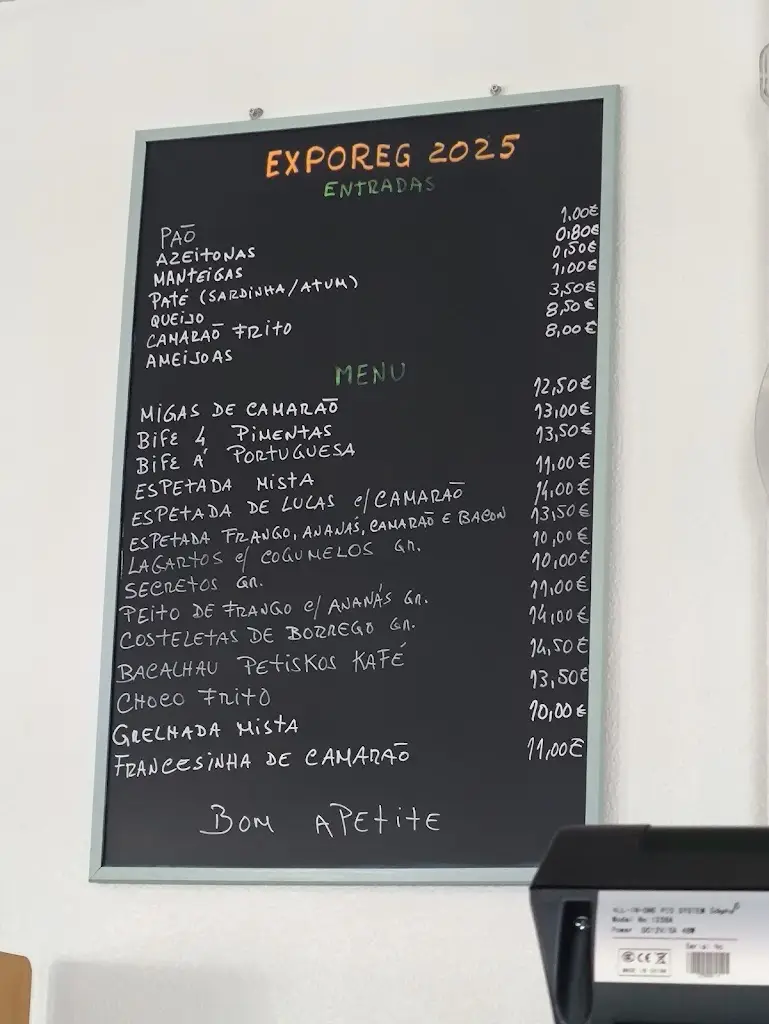 EXPOREG 2025
ENTRADAS
PAÕ 1.00€
AZEITONAS 0,80€
MANTEIGAS 0,50€
PATÉ (SARDINHA/ATUM) 1,00€
QUEIJO 3,50€
CAMARAÕ FRITO 8,50€
AMEIJOAS 8,00€
MENU
MIGAS DE CAMARAÕ 12,50€
BIFE 4 PIMENTAS 13,00€
BIFE Á PORTUGUESA 13,50€
ESPETADA MISTA 11,00€
ESPETADA DE LULAS c/ CAMARAÕ 14,00€
ESPETADA FRANGO, ANANÁS, CAMARAÕ E BACON 13,50€
LAGARTOS c/ COGUMELOS GR. 10,00€
SECRETOS GR. 10,00€
PEITO DE FRANGO c/ ANANÁS GR. 11,00€
COSTELETAS DE BORREGO GR. 14,00€
BACALHAU PETISKOS KAFÉ 14,50€
CHOCO FRITO 13,50€
GRELHADA MISTA 10,00€
FRANCESINHA DE CAMARAÕ 11,00€
BOM APETITE
ALL-IN-ONE POS SYSTEM
Model No:
Power DC12V/5A
Serial No
CE
MADE IN CHINA